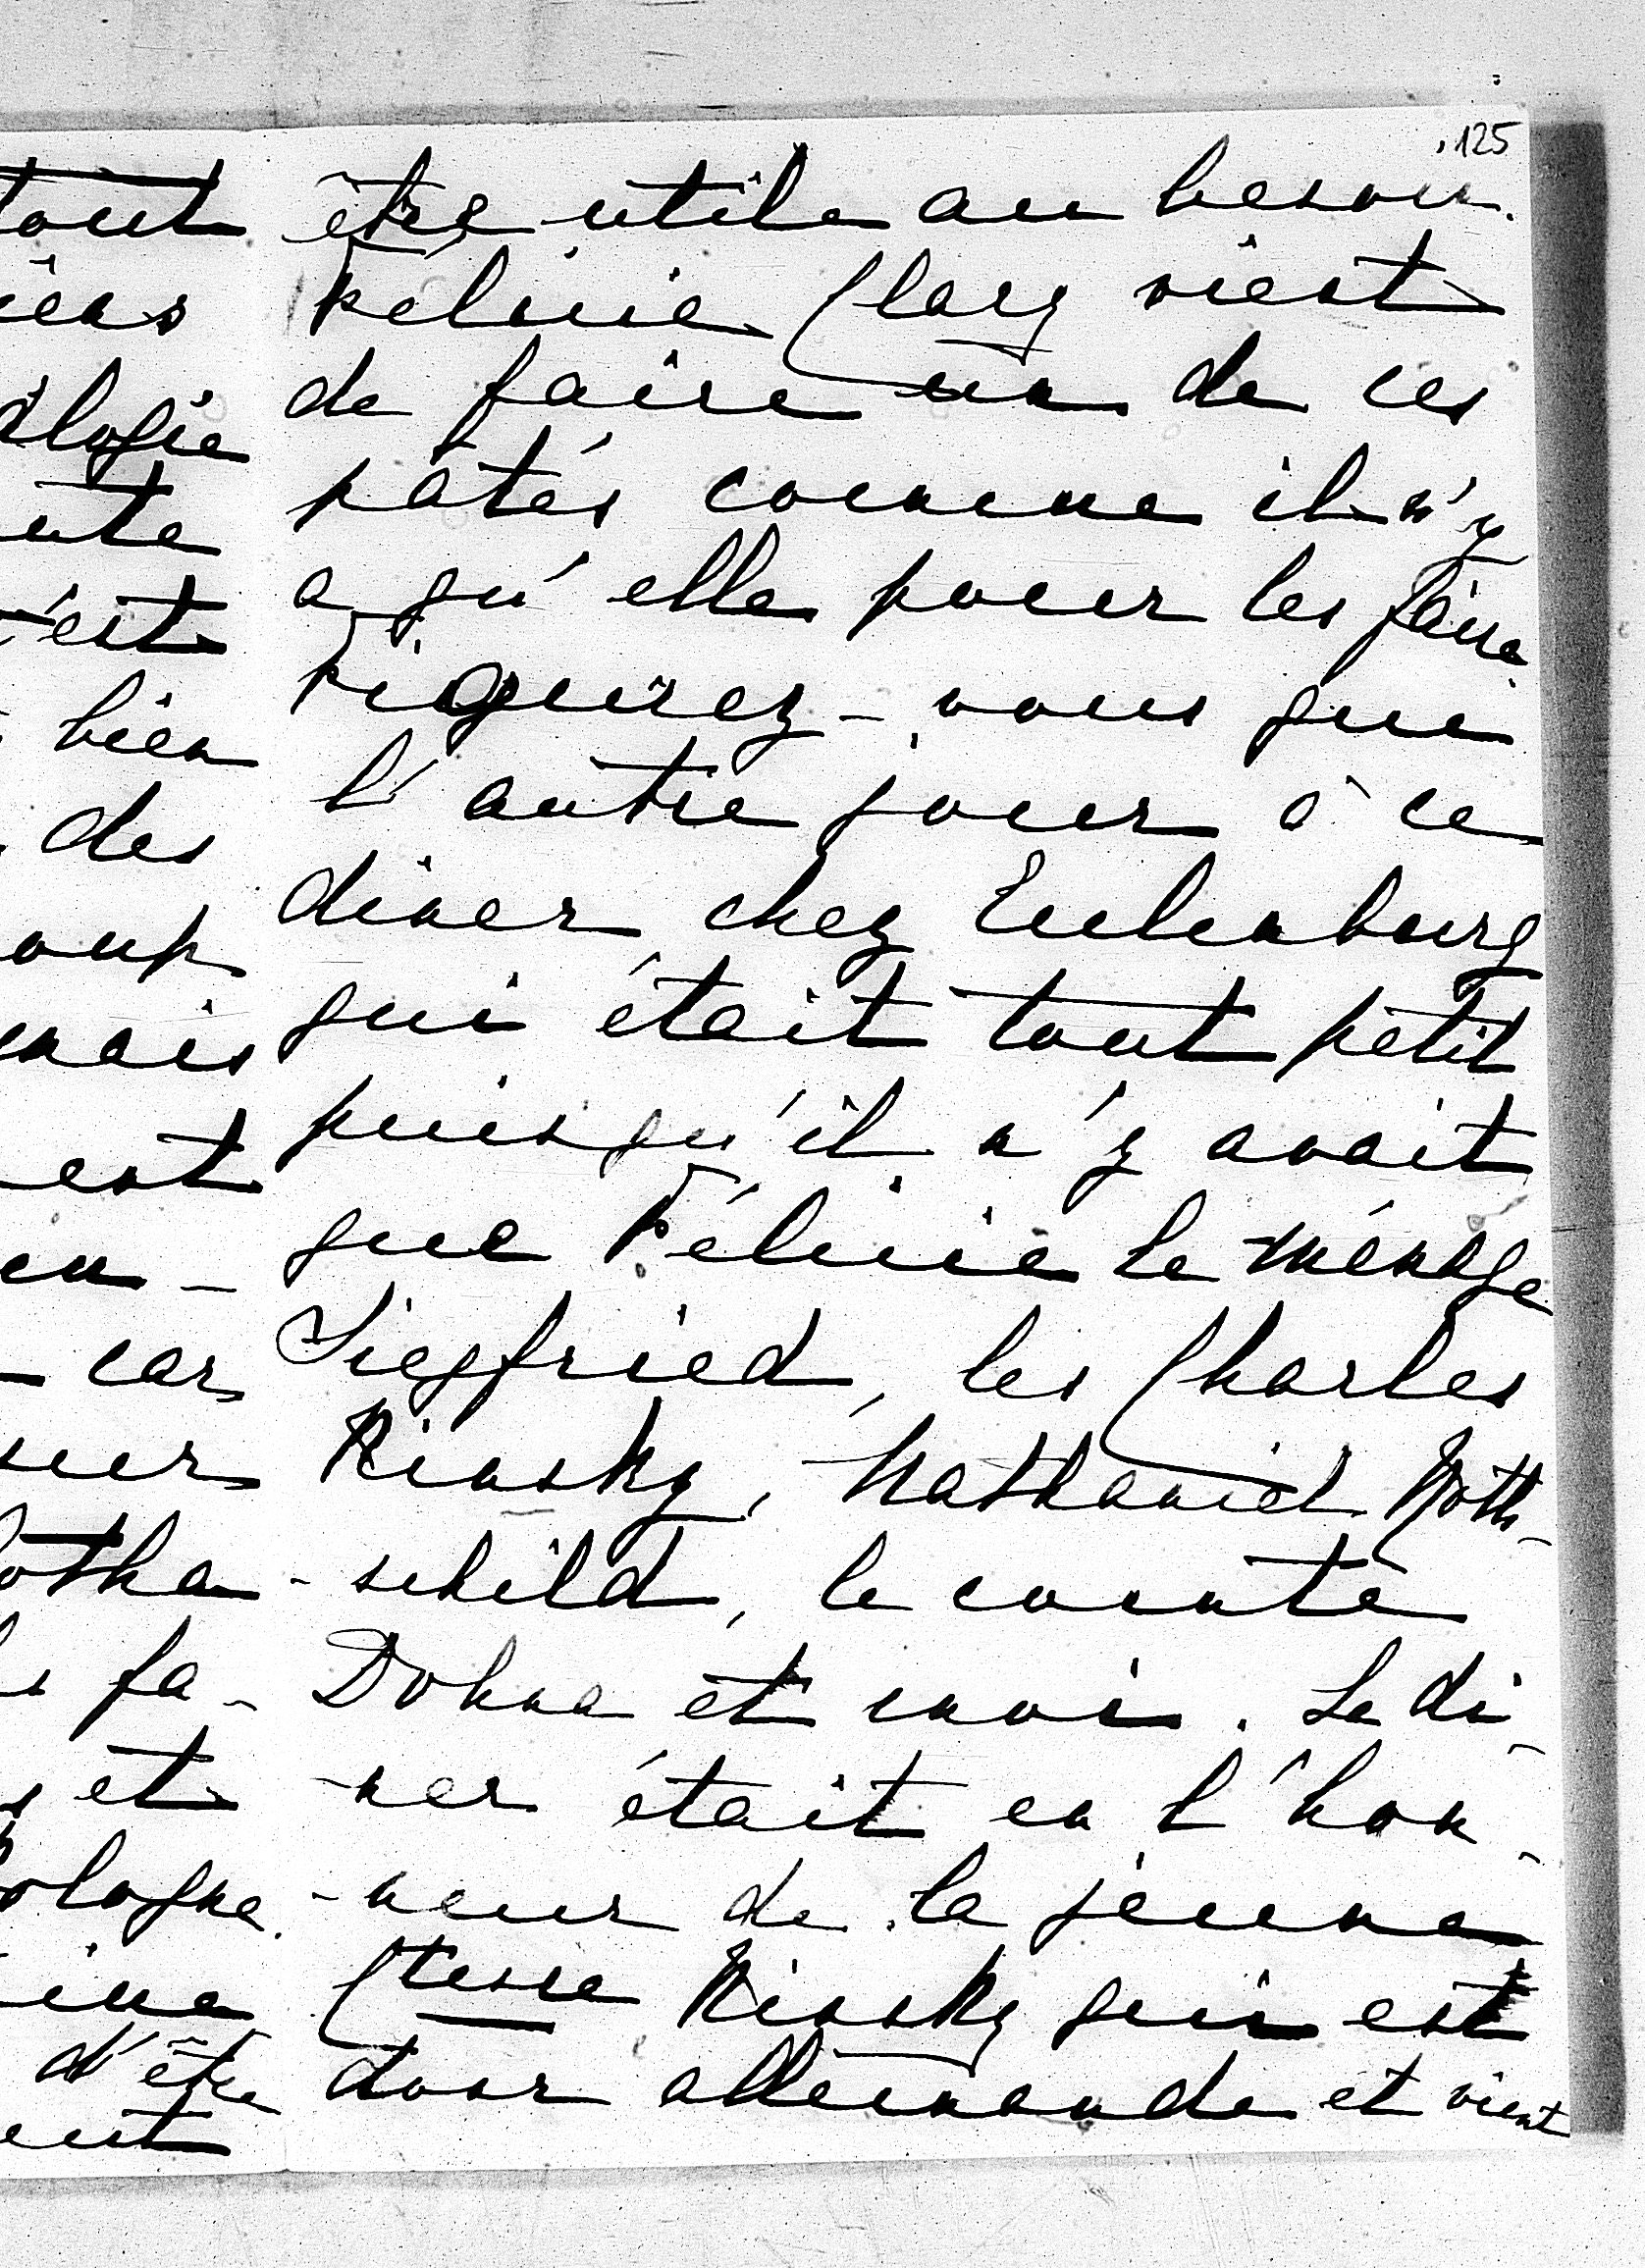 125
être utile au besoin.
Félicie Clary vient
de faire un de ces
pâtés comme il n'y
a qu'elle pour les faire
Figurez-vous que
l'autre jour à ce
diner chez Eulenburg
qui était tout petit
puisqu'il n'y avait
que Félicie le ménage
Siegfried, les Charles
Kinsky, Nathaniel Roth-
-schild, le comte
Dohna et moi. Le di-
-ner était en l'hon-
-neur de la jeune
Ctesse Kinsky qui est
allemande et vient
tout
logie
est
bien
des
oup
mais
est
en-
- car
fa-
et
d'être